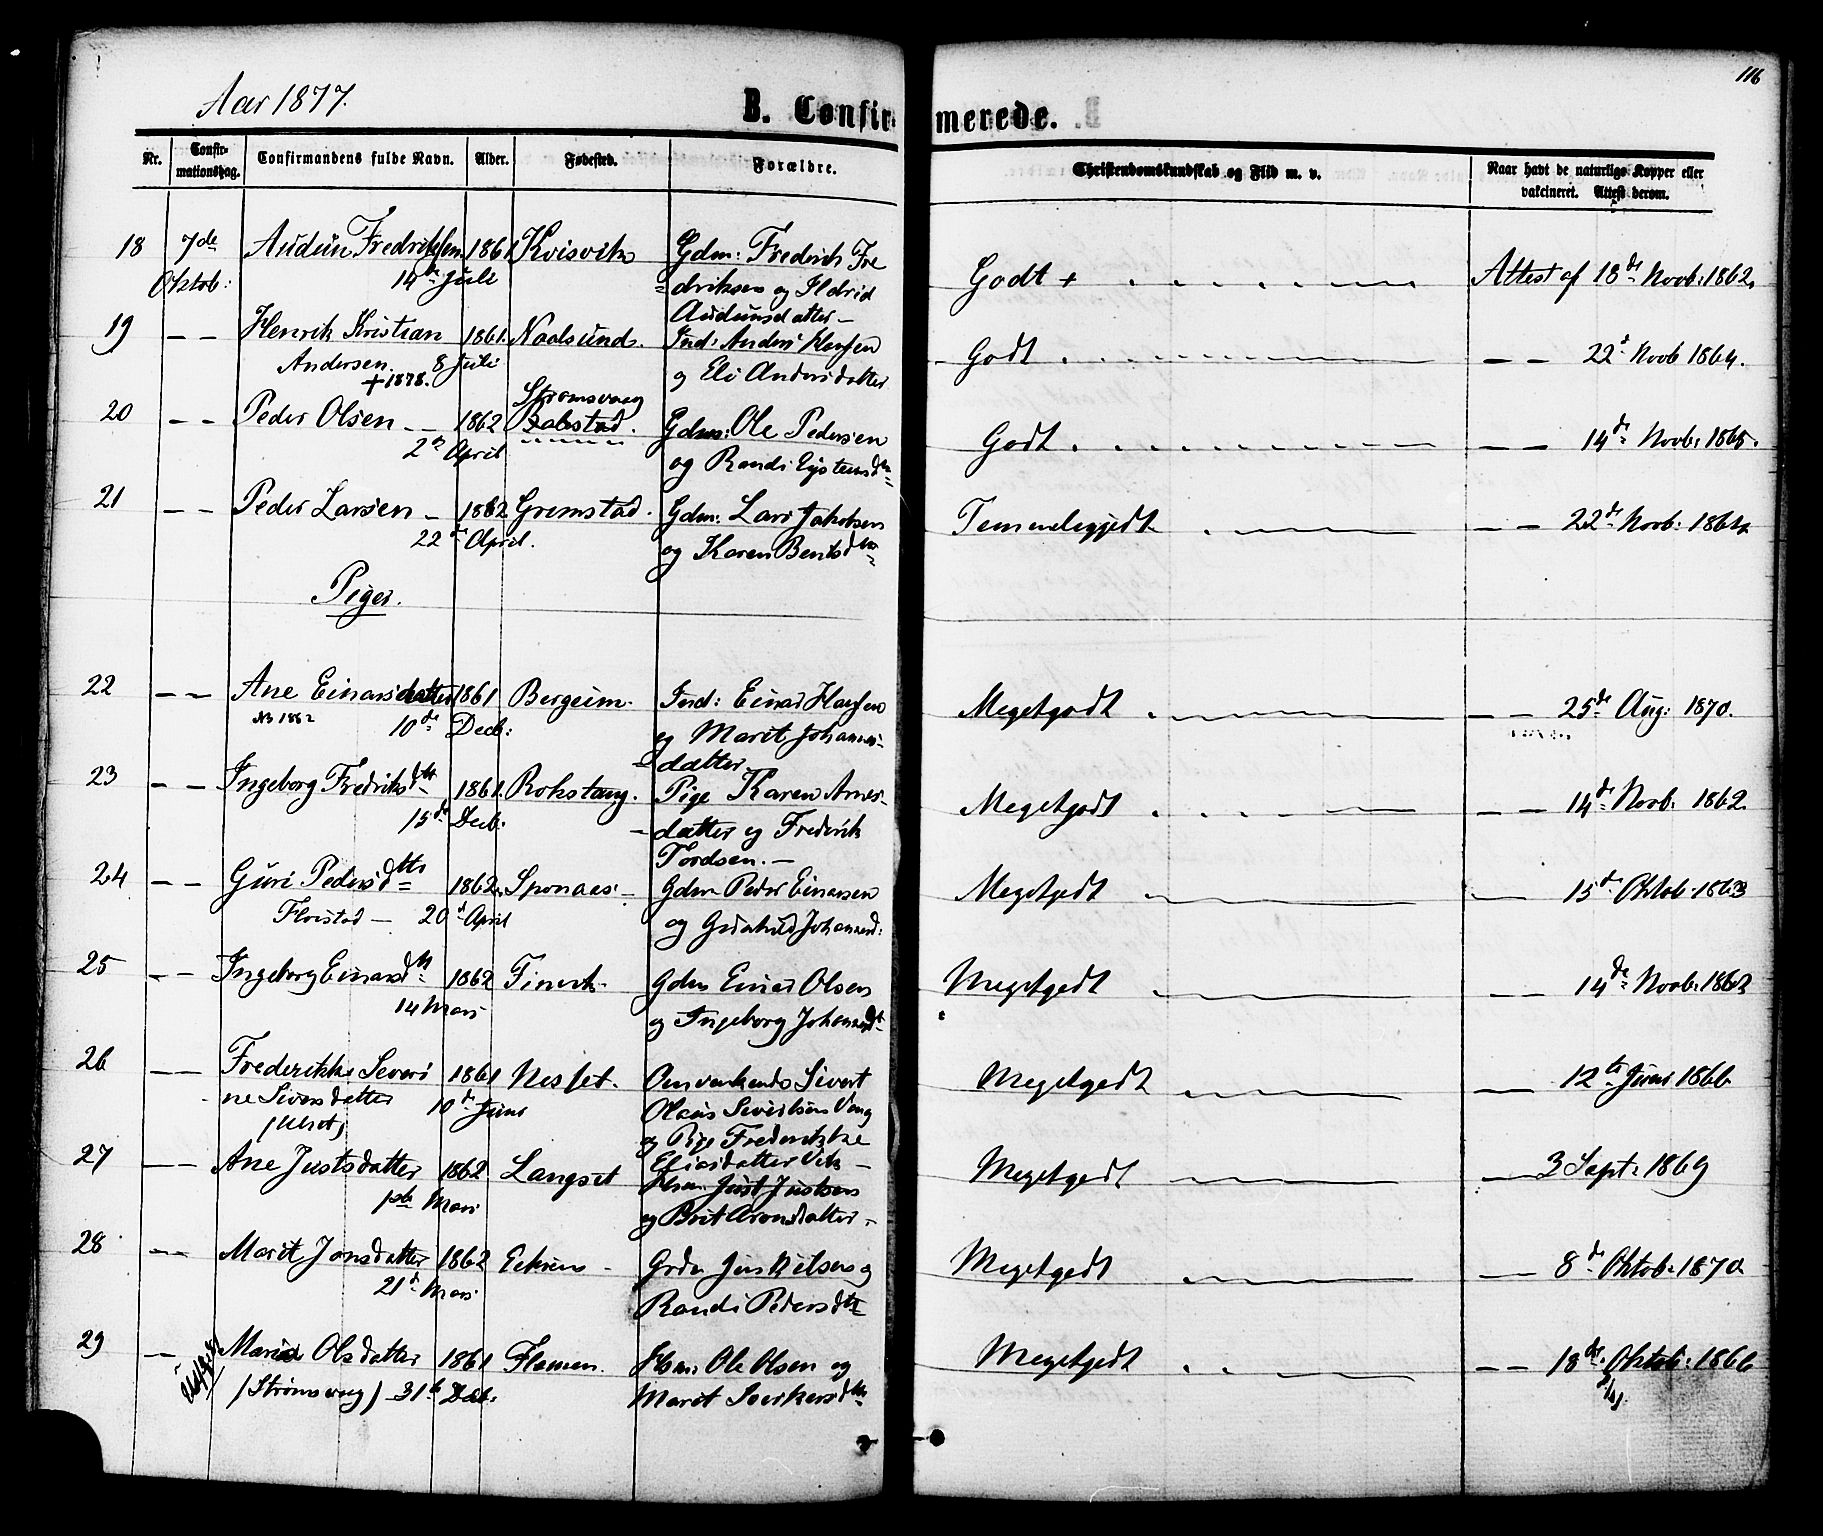 116
Aar 1877.
B. Confirmerede.
Nr. Confirmationsdag. Confirmandens fulde Navn. Alder. Fødested. Forældre. Christendomskundskab og Flid m. v. Naar havt de naturlige Kopper eller vakcineret. Attest derom.
18 7de Audun Fredriksen 1861 Kvisvik Gdm: Frederik Fre
Oktob: 14de Juli driksen og Ildrid Godt + Attest af 18de Novb: 1862.
Audunsdatter
19 — — Henrik Kristian 1861. Naalsund. Ind: Anders Hansen Godt — — 22d Novb 1864.
Andersen 8 Juli og Eli Andersdatter
+ 1878.
Strømsvaag
20 — — Peder Olsen — 1862 Balstad. Gdm: Ole Pedersen Godt — — 14de Novb: 1865.
2den April og Randi Eystensdtr
21 — — Peder Larsen — 1862 Gremstad. Gdm: Lars Jakobsen Temmeliggodt — — 22de Novb: 1864
22d April. og Karen Bentsdtr
Piger.
22 — — Ane Einarsdatter 1861 Bergeim. Ind: Einar Hansen Megetgodt — — 25de Aug: 1870.
NB 1862 10de Decb: og Marit Johannes-
datter
23 — — Ingeborg Fredriksdtr 1861. Rokstang. Pige Karen Arnes- Megetgodt — — 14de Novb: 1862.
15de Decb: datter og Frederik
Tordsen. —
24 — — Guri Pedersdtr 1862. Sponaas — Gdm Peder Einarsen Megetgodt — 15de Oktob 1863
Flvistad — 20d April og Johannesd:
25 — — Ingeborg Einarsdtr 1862 Gdm Einar Olsen Megetgodt — — 14de Novb: 1862
14 Mars og Ingeborg Johannesdtr
26 — — Frederikke Severi 1861 Nesset. Omvankende Sivert Megetgodt — 12te Juni 1866
ne Siversdatter 10de Juni Olaus Sivertsen Vaag
og Pige Frederikke
27 — — Ane Justsdatter 1862 Langset Eliasdatter Vik — Megetgodt — 3 Sept: 1869
1ste Mars Hsm. Just Justsen
og Brit Aronsdatter —
28 — — Marit Jonsdatter 1862 — Gdm Jon Nilsen og Megetgodt — 8de Oktob: 1870
21d Mars Randi Pedersdtr
29 — Marie Olsdatter 1861 Flemmen. Hsm: Ole Olsen og Megetgodt — — 18de Oktob: 1866
(Strømsvag) 31te Decb: Marit Sverkersdtr